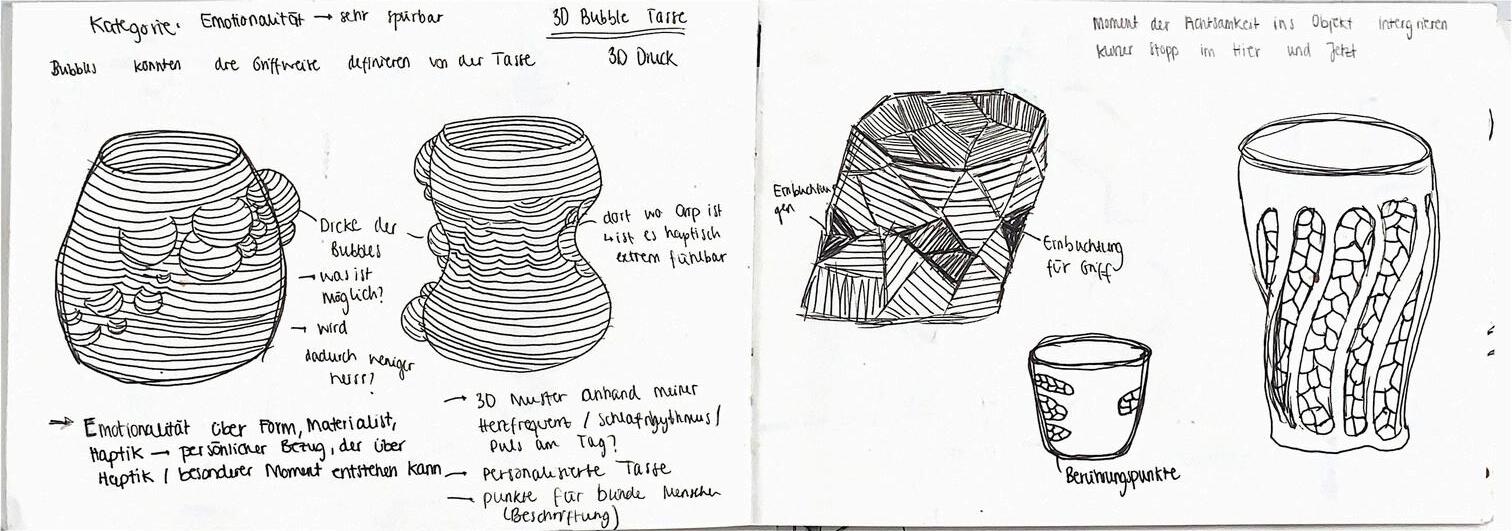 Kategorie: Emotionalität → sehr spürbar
3D Bubble Tasse
Bubbles könnten die Griffweite definieren von der Tasse
3D Druck
Dicke der
Bubbles
→ was ist
möglich?
→ wird
dadurch weniger
heiss?
dort wo Grip ist
↳ ist es haptisch
extrem fühlbar
→ Emotionalität über Form, Materialist,
Haptik → persönlicher Bezug, der über
Haptik / besonderer Moment entstehen kann
→ 3D Muster anhand meiner
Herzfrequenz / Schlafrhythmus /
Puls am Tag?
→ personalisierte Tasse
→ punkte für blinde Menschen
(Beschriftung)
Moment der Achtsamkeit ins Objekt intergrieren
kurzer Stopp im Hier und Jetzt
Einbuchtun
gen
Einbuchtung
für Griff
Berührungspunkte